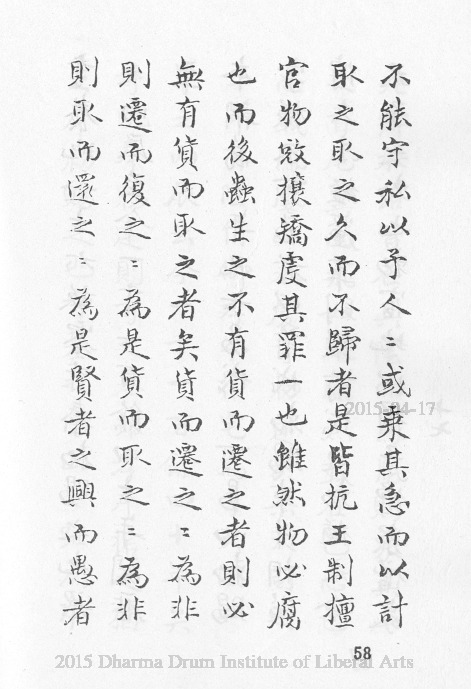 不能守私以予人〻或乘其急而以計
取之取之久而不歸者是皆抗王制擅
官物敓攘矯虔其罪一也雖然物必腐
也而後蟲生之不有貨而遷之者則必
無有貨而取之者矣貨而遷之〻為非
則遷而復之〻為是貨而取之〻為非
則取而還之〻為是賢者之興而愚者
2015-04-17
58
2015 Dharma Drum Institute of Liberal Arts